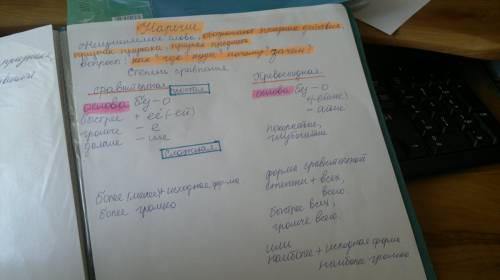 Наречие
Неизменяемое слово, обозначает признак действия,
признак признака, признак предмета.
вопрос: как? где? куда? почему? зачем?
Степени сравнения
сравнительная
простая
основа без -о
быстрее + ее (-ей)
громче - е
далее - ше
сложная
более (менее) + исходная форма
более громко
превосходная
основа без -о
(-ейше)
- айше
покорнейше,
глубочайше
форма сравнительной
степени + всех,
всего
быстрее всех,
громче всего.
или
наиболее + исходная форма
наиболее громко